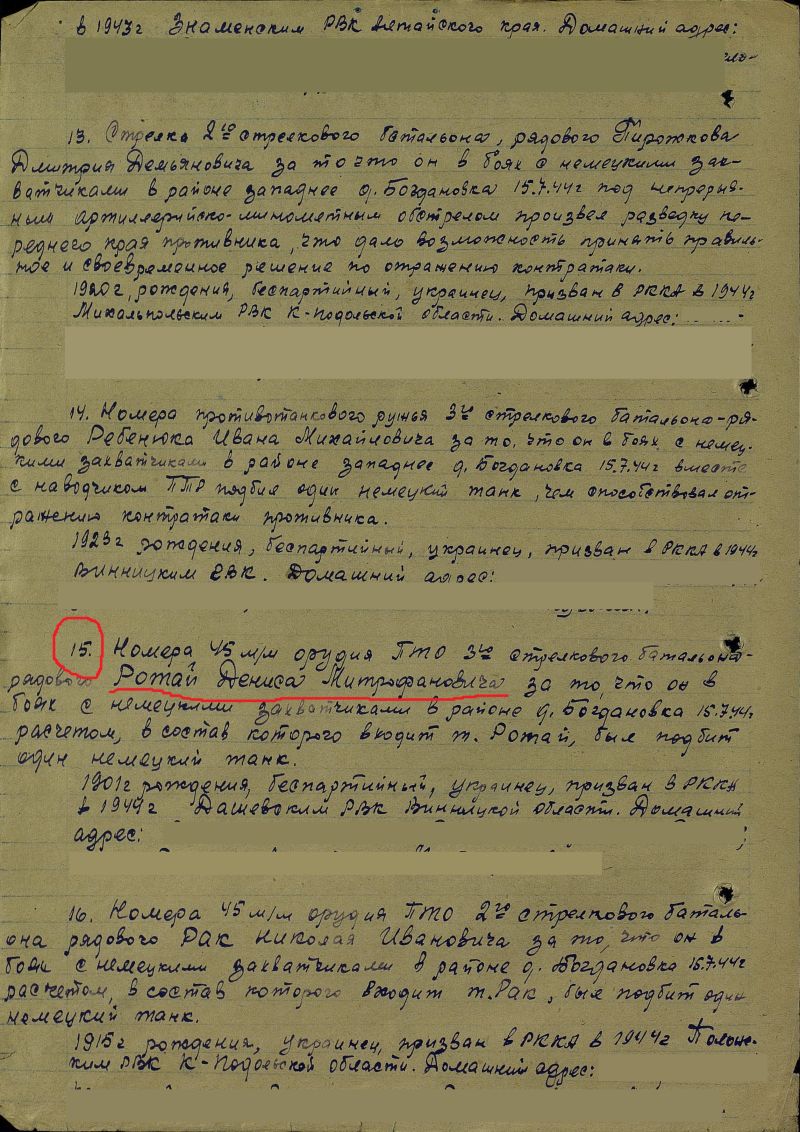 в 1943г Знаменским РВК Алтайского края. Домашний адрес:
13. Стрелка 2го стрелкового батальона, рядового Пирожкова
Дмитрия Демьяновича за то что он в боях с немецкими зах-
ватчиками в районе западнее д. Богдановка 15.7.44г под непрерыв-
ным артиллерийско-минометным обстрелом произвел разведку пе-
реднего края противника, что дало возможность принять правиль-
ное и своевременное решение по отражению контратаки.
1920г, рождения, беспартийный, украинец, призван в РККА в 1944г
Михальпольским РВК К-Подольской области. Домашний адрес:
14. Номера противотанкового ружья 3го стрелкового батальона-ря-
дового Ребенюка Ивана Михайловича за то, что он в боях с немец-
кими захватчиками в районе западнее д. Богдановка 15.7.44г вместе
с наводчиком ПТР подбил один немецкий танк, чем способствовал от-
ражению контратаки противника.
1923г рождения, беспартийный, украинец, призван в РККА в 1944г
Винницким РВК. Домашний адрес:
15. Номера 45 м/м орудия ПТО 3го стрелкового батальона-
рядового Ротай Дениса Митрофановича за то, что он в
боях с немецкими захватчиками в районе д. Богдановка 15.7.44г
расчетом, в состав которого входит т. Ротай, был подбит
один немецкий танк.
1901г рождения, беспартийный, украинец, призван в РККА
в 1944г Дашевским РВК Винницкой области. Домашний
адрес:
16. Номера 45 м/м орудия ПТО 2го стрелкового баталь-
она рядового Рак Николая Ивановича за то, что он в
боях с немецкими захватчиками в районе д. Богдановка 15.7.44г
расчетом, в состав которого входит т. Рак, был подбит один
немецкий танк.
1915г рождения, украинец, призван в РККА в 1944г Полонс-
ким РВК К-Подольской области. Домашний адрес: